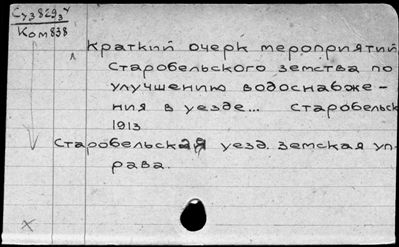 Ком 838
Краткий очерк мероприятий
Старобельского земства по
улучшению водоснабже-
ния в уезде... Старобельск
1913
Старобельская уезд. земская уп-
рава.